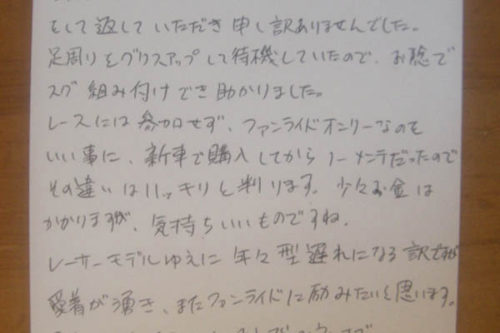 そして返していただき申し訳ありませんでした。
足周りをグリスアップして待機していたので、お陰で
スグ組み付けでき助かりました。
レースには参加せず、ファンライドオンリーなのを
いい事に、新車で購入してからノーメンテだったので
その違いはハッキリと判ります。少々お金は
かかりますが、気持ちいいものですね。
レーサーモデルゆえに年々型遅れになる訳ですが
愛着が湧き、またファンライドに励みたいと思います。